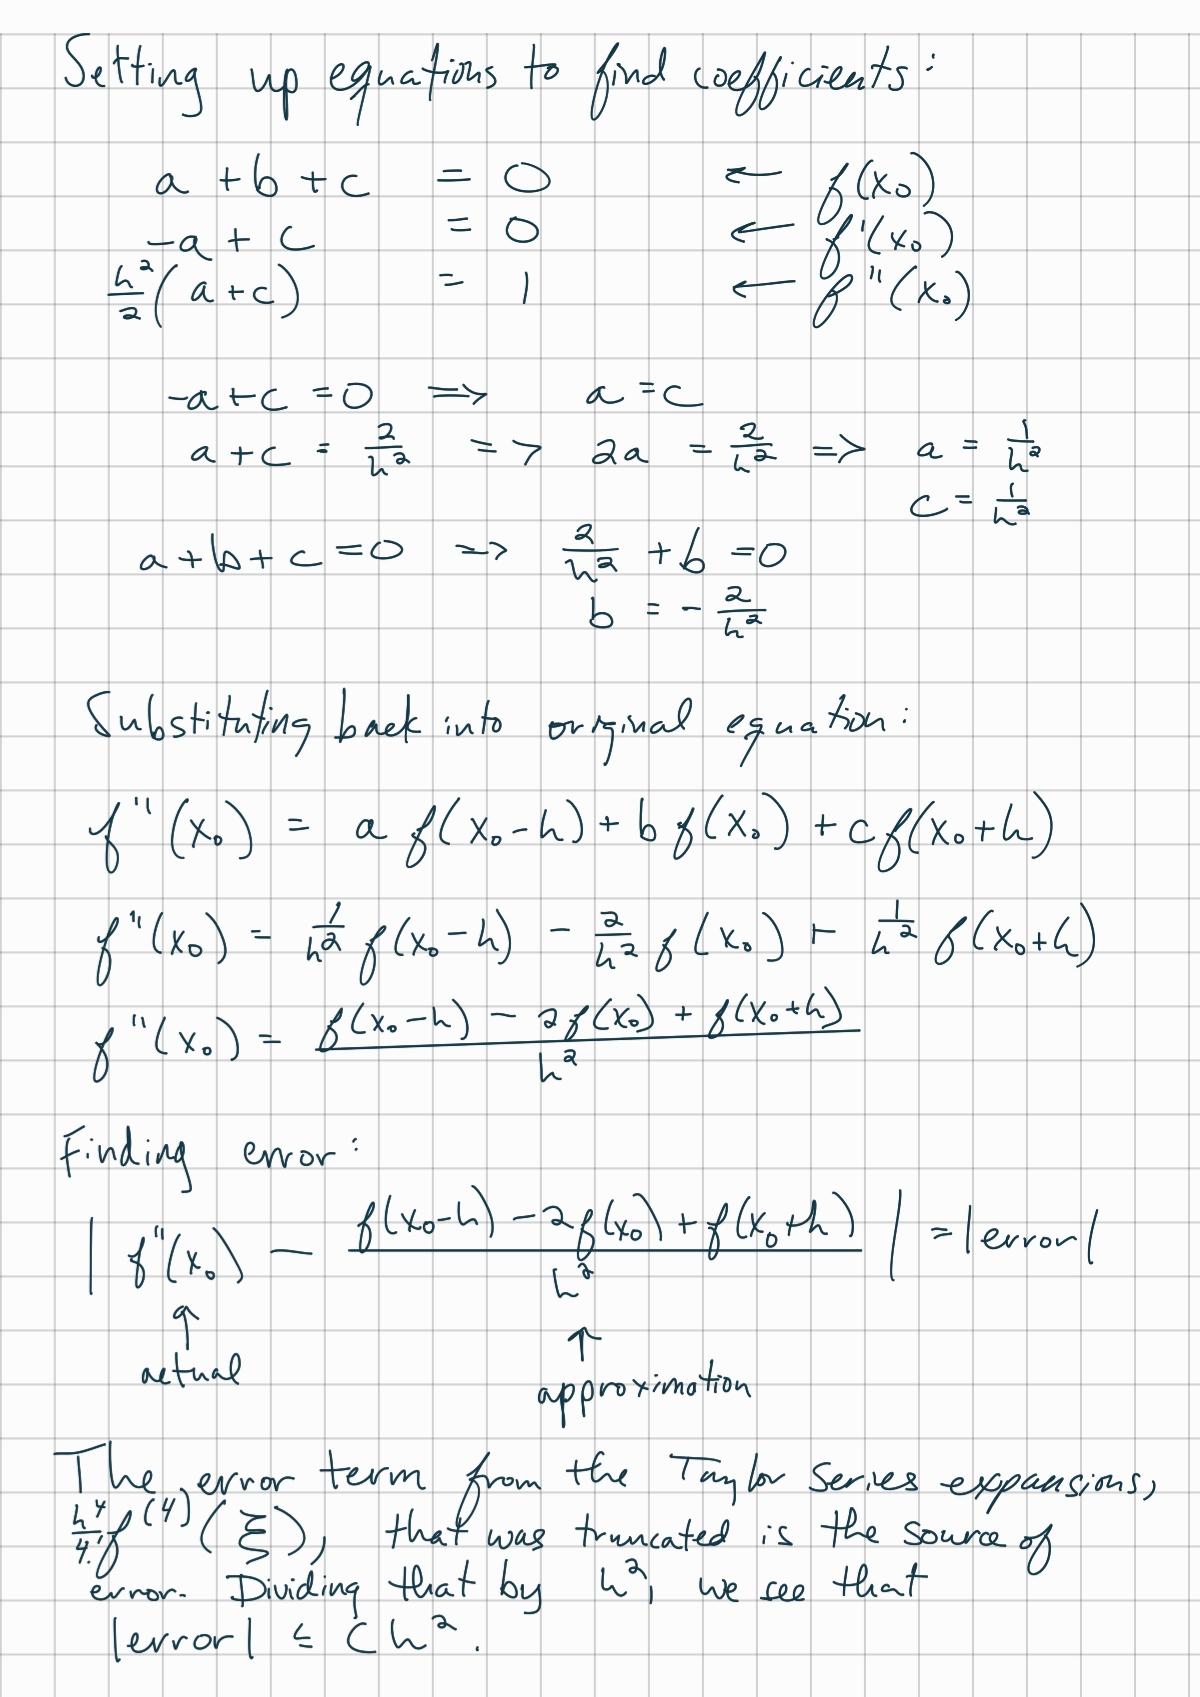 Setting up equations to find coefficients:
a + b + c = 0 ← f(x₀)
-a + c = 0 ← f'(x₀)
h²/2 (a + c) = 1 ← f''(x₀)
-a + c = 0 => a = c
a + c = 2/h² => 2a = 2/h² => a = 1/h²
c = 1/h²
a + b + c = 0 => 2/h² + b = 0
b = - 2/h²
Substituting back into original equation:
f''(x₀) = a f(x₀-h) + b f(x₀) + c f(x₀+h)
f''(x₀) = 1/h² f(x₀-h) - 2/h² f(x₀) + 1/h² f(x₀+h)
f''(x₀) = (f(x₀-h) - 2f(x₀) + f(x₀+h)) / h²
Finding error:
| f''(x₀) - (f(x₀-h) - 2f(x₀) + f(x₀+h)) / h² | = |error|
↑ ↑
actual approximation
The error term from the Taylor Series expansions,
h⁴/4! f⁽⁴⁾(ξ), that was truncated is the source of
error. Dividing that by h², we see that
|error| ≤ Ch².